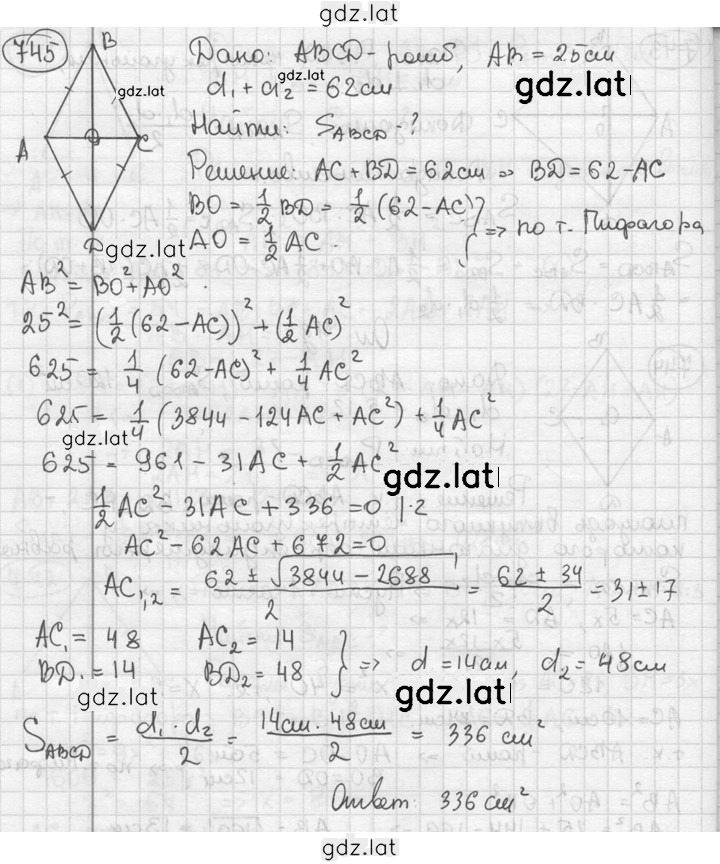 gdz.lat
745
B
gdz.lat
A
C
O
D
gdz.lat
Дано: ABCD - ромб, AB = 25см
d₁ + d₂ = 62см
gdz.lat
gdz.lat
Найти: S_ABCD - ?
Решение: AC + BD = 62см ⇒ BD = 62 - AC
BO = 1/2 BD = 1/2 (62 - AC)
AO = 1/2 AC } ⇒ по т. Пифагора
AB² = BO² + AO².
25² = (1/2 (62 - AC))² + (1/2 AC)²
625 = 1/4 (62 - AC)² + 1/4 AC²
625 = 1/4 (3844 - 124AC + AC²) + 1/4 AC²
gdz.lat
625 = 961 - 31AC + 1/2 AC²
gdz.lat
1/2 AC² - 31AC + 336 = 0 |·2
AC² - 62AC + 672 = 0
AC₁,₂ = (62 ± √(3844 - 2688))/2 = (62 ± 34)/2 = 31 ± 17
AC₁ = 48 AC₂ = 14
BD₁ = 14 BD₂ = 48 } ⇒ d = 14см, d₂ = 48см
gdz.lat
gdz.lat
S_ABCD = (d₁ · d₂)/2 = (14см · 48см)/2 = 336 см²
Ответ: 336 см²
gdz.lat